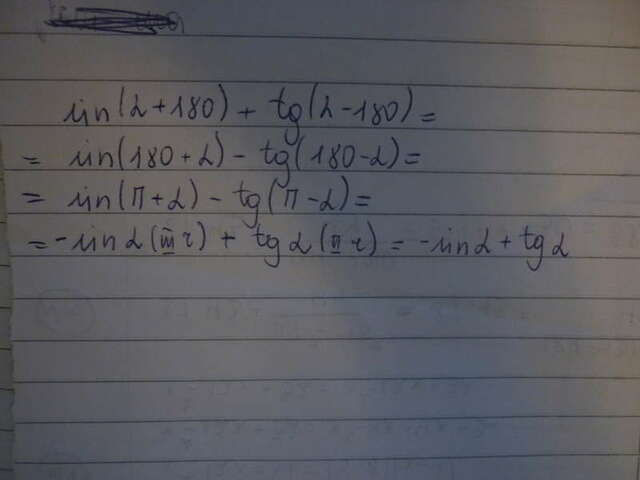 sin(α+180) + tg(α-180) =
= sin(180+α) - tg(180-α) =
= sin(π+α) - tg(π-α) =
= -sin α (III ч) + tg α (II ч) = -sin α + tg α